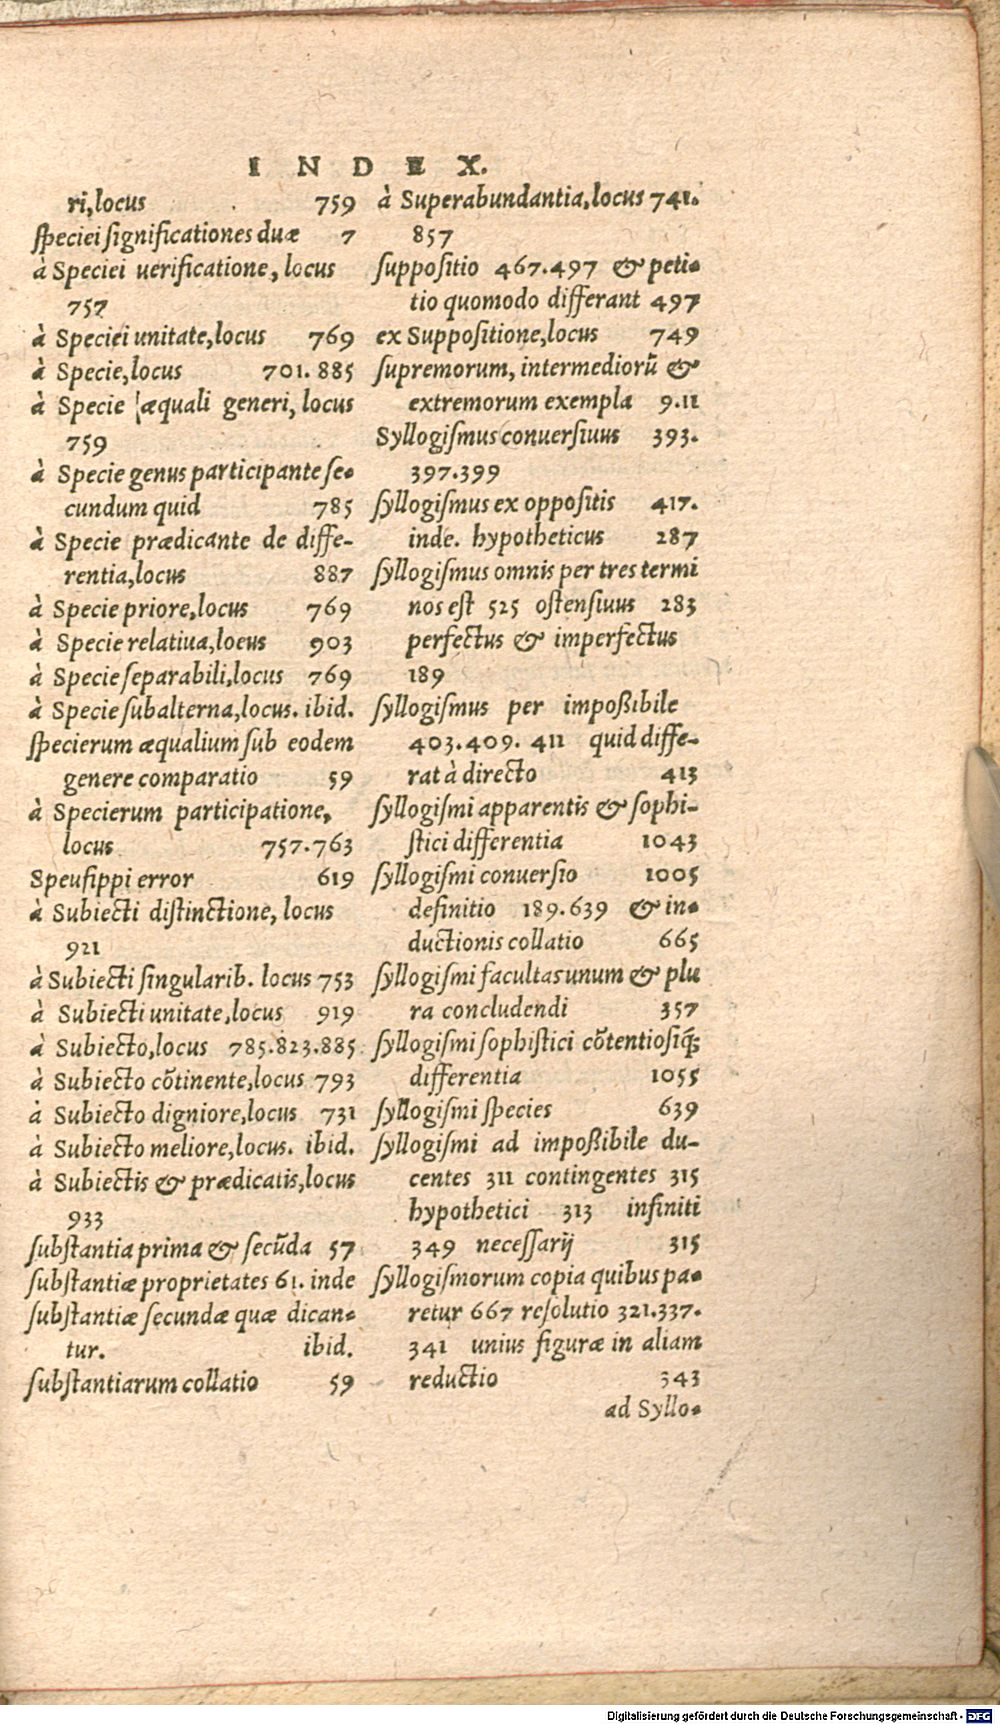 INDEX.
ri,locus 759
ſpeciei ſignificationes duæ 7
à Speciei uerificatione, locus
757
à Speciei unitate,locus 769
à Specie,locus 701. 885
à Specie æquali generi, locus
759
à Specie genus participante ſe-
cundum quid 785
à Specie prædicante de diffe-
rentia,locus 887
à Specie priore,locus 769
à Specie relatiua,loeus 903
à Specie ſeparabili,locus 769
à Specie ſubalterna,locus. ibid.
ſpecierum æqualium ſub eodem
genere comparatio 59
à Specierum participatione,
locus 757.763
Speuſippi error 619
à Subiecti diſtinctione, locus
921
à Subiecti ſingularib. locus 753
à Subiecti unitate,locus 919
à Subiecto,locus 785.823.885
à Subiecto cõtinente,locus 793
à Subiecto digniore,locus 731
à Subiecto meliore,locus. ibid.
à Subiectis & prædicatis,locus
933
ſubſtantia prima & ſecũda 57
ſubſtantiæ proprietates 61. inde
ſubſtantiæ ſecundæ quæ dican-
tur. ibid.
ſubſtantiarum collatio 59
à Superabundantia,locus 741.
857
ſuppoſitio 467.497 & peti-
tio quomodo differant 497
ex Suppoſitione,locus 749
ſupremorum, intermediorũ &
extremorum exempla 9.11
Syllogiſmus conuerſiuus 393.
397.399
ſyllogiſmus ex oppoſitis 417.
inde. hypotheticus 287
ſyllogiſmus omnis per tres termi
nos eſt 525 oſtenſiuus 283
perfectus & imperfectus
189
ſyllogiſmus per impoßibile
403.409. 411 quid diffe-
rat à directo 413
ſyllogiſmi apparentis & ſophi-
ſtici differentia 1043
ſyllogiſmi conuerſio 1005
definitio 189.639 & in-
ductionis collatio 665
ſyllogiſmi facultas unum & plu
ra concludendi 357
ſyllogiſmi ſophiſtici cõtentioſiq́;
differentia 1055
ſyllogiſmi ſpecies 639
ſyllogiſmi ad impoßibile du-
centes 311 contingentes 315
hypothetici 313 infiniti
349 neceſſarij 315
ſyllogiſmorum copia quibus pa-
retur 667 reſolutio 321.337.
341 unius figuræ in aliam
reductio 343
ad Syllo-
Digitalisierung gefördert durch die Deutsche Forschungsgemeinschaft - DFG